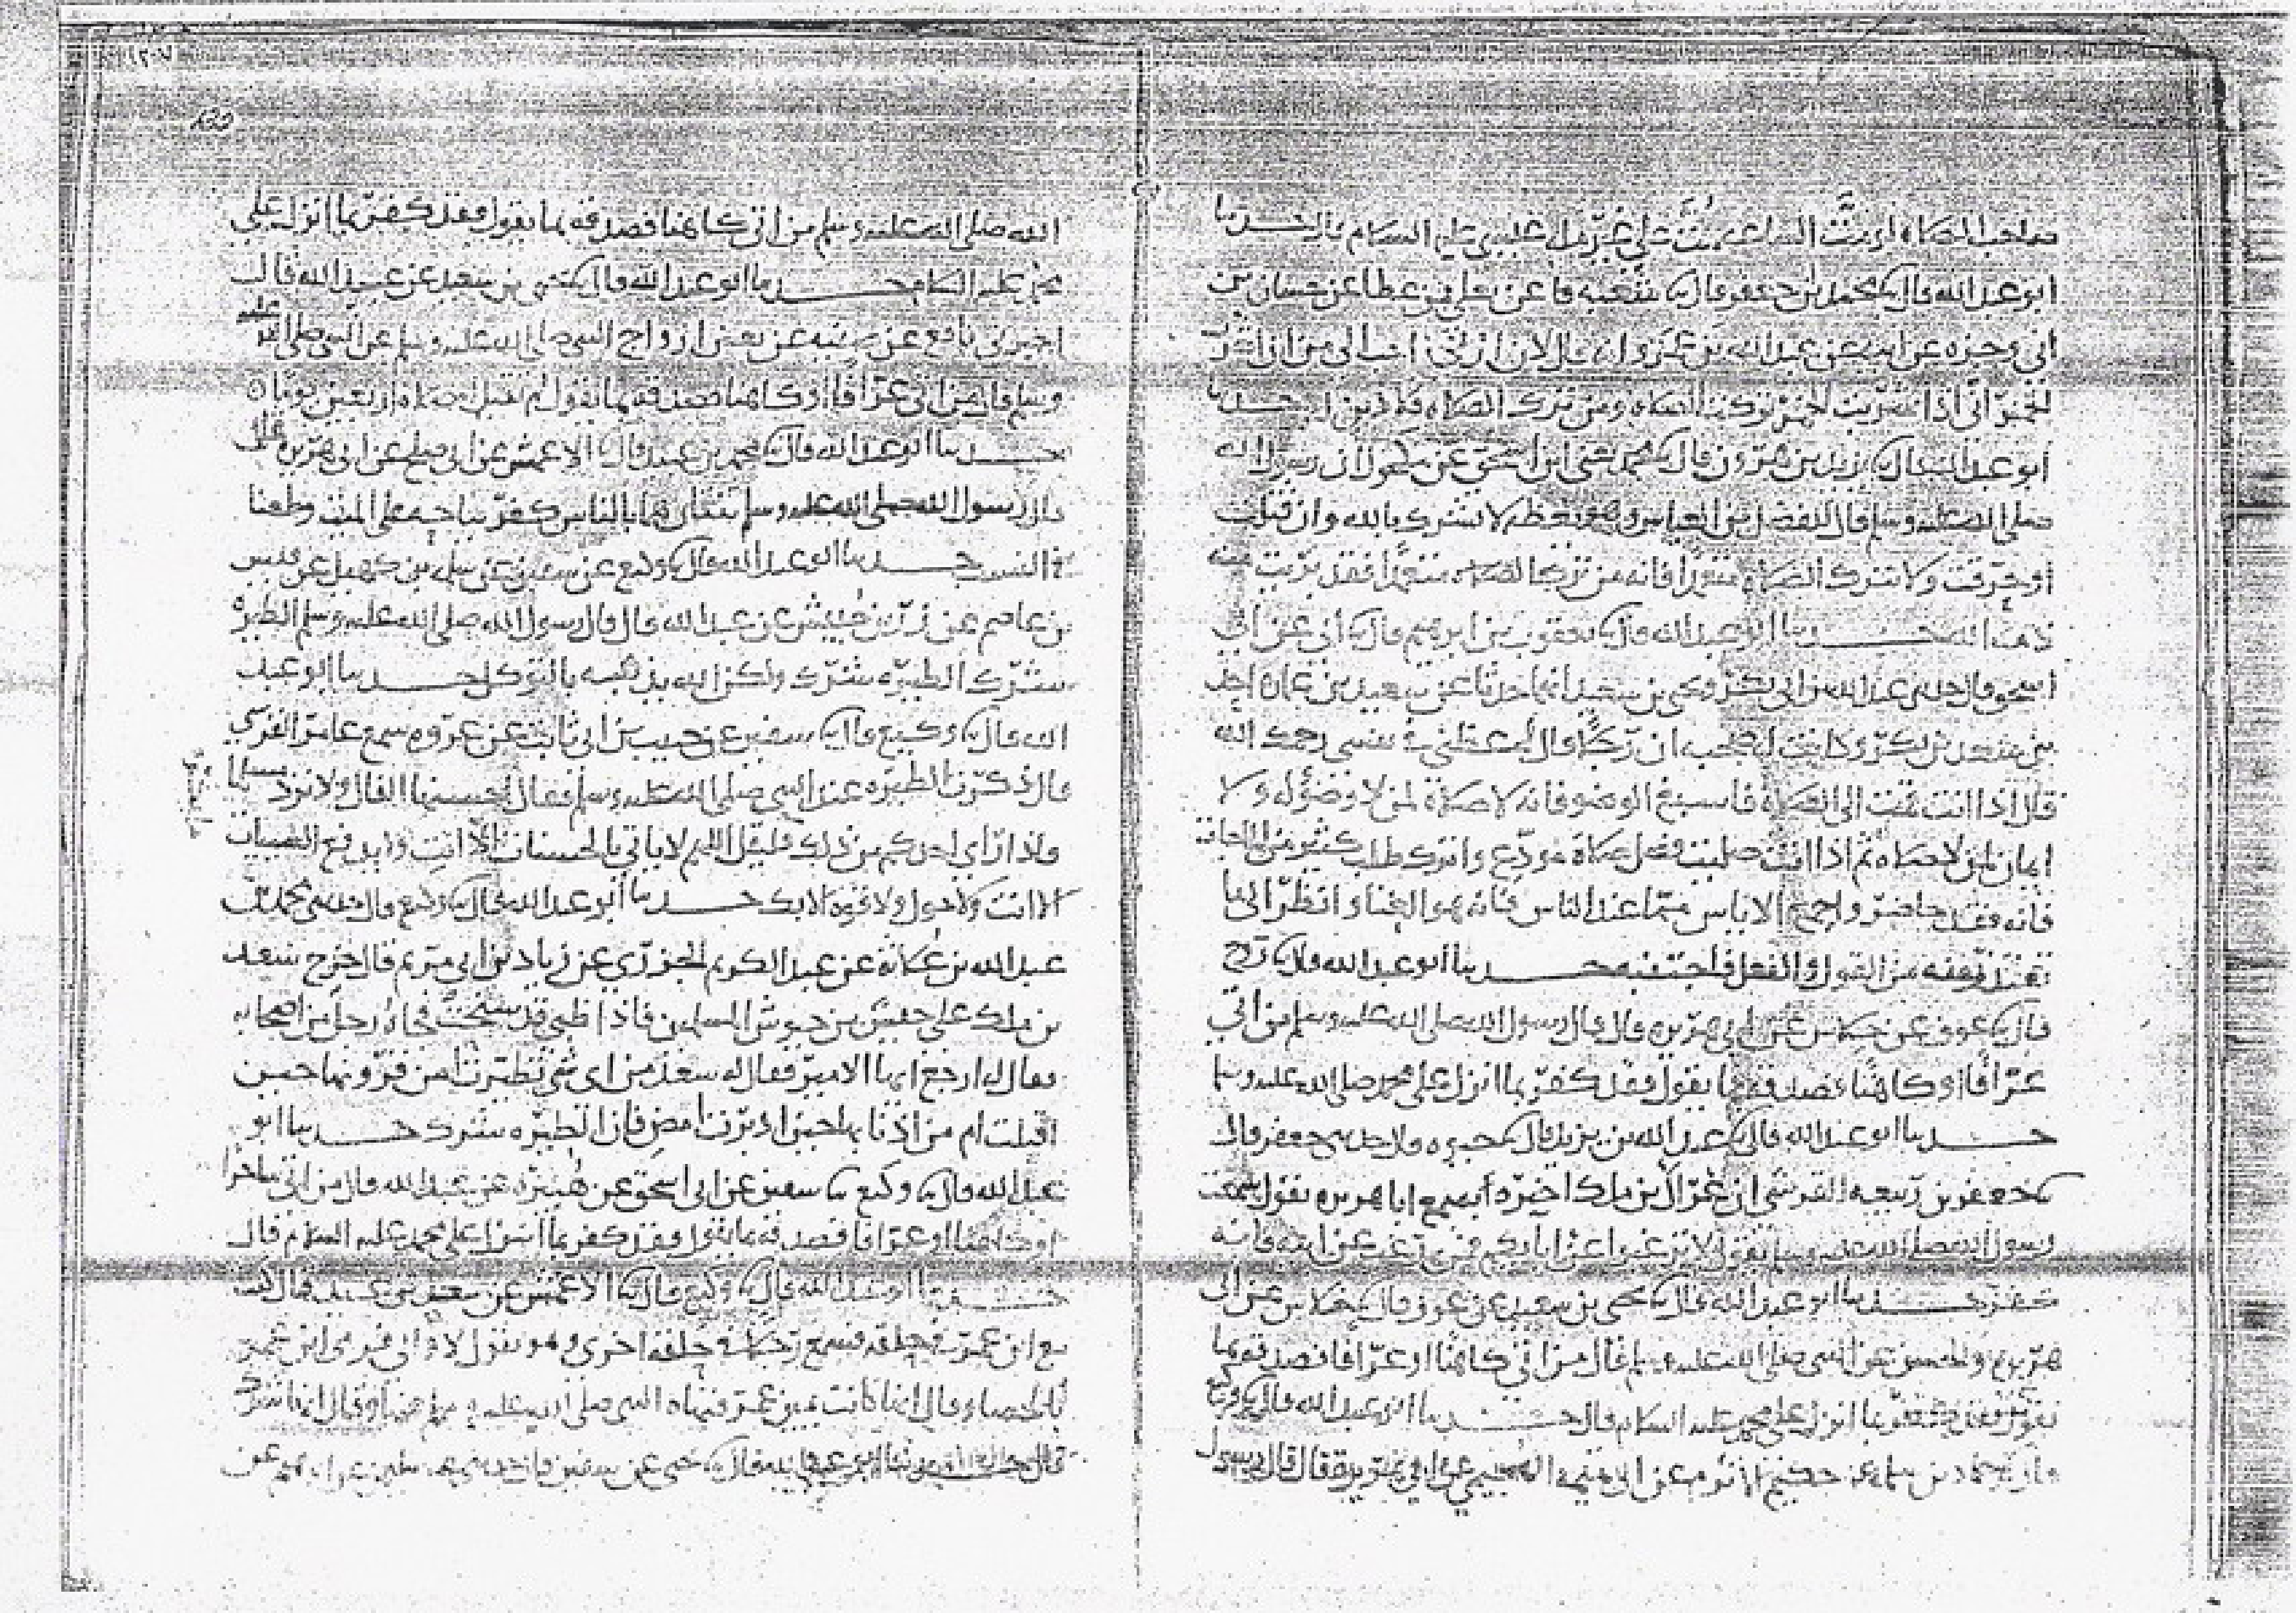 ابو عبد الله قال محمد بن جعفر قال شعبه عن يعلى بن عطا عن
ابي وجزه عن ابيه عن عبد الله بن عمرو انه قال لان ازني احب الي من ان اشرب
الخمر اني اذا شربت الخمر تركت الصلاه ومن ترك الصلاه فلا دين له حدثنا
ابو عبد الله قال يزيد بن هرون قال محمد يعني ابن اسحق عن مكحول ان رسول الله
صلى الله عليه وسلم قال للفضل بن العباس وهو يعظه لا تشرك بالله وان قتلت
او حرقت ولا تترك الصلاة متعمدا فانه من ترك الصلاه متعمدا فقد برئت منه
حدثنا ابو عبد الله قال يعقوب بن ابرهيم قال ابي عن ابن
اسحق قال حدثني عبد الله بن ابي بكر ويحيى بن سعيد انهما حدثا عن سعيد بن عماره احد
بني سعد بن بكر وكانت له صحبه ان رجلا قال له عظني في نفسي رحمك الله
قال اذا انت قمت الى الصلاة فاسبغ الوضو فانه لا صلاة لمن لا وضوء له ولا
ايمان لمن لا صلاه له ثم اذا انت صليت فصل صلاة مودع واترك طلب كثير من الحاجات
فانه فقر حاضر واجمع الاياس مما عند الناس فانه هو الغنا وانظر الى ما
تعتذر منه من القول والفعل فاجتنبه حدثنا ابو عبد الله قال روح
قال عوف عن خلاس عن ابي هريره قال قال رسول الله صلى الله عليه وسلم من اتى
عرافا او كاهنا فصدقه بما يقول فقد كفر بما انزل على محمد صلى الله عليه وسلم
حدثنا ابو عبد الله قال عبد الله بن يزيد قال حيوه قال حدثني جعفر
بن ربيعه القرشي ان عراك بن ملك اخبره انه سمع ابا هريره يقول سمعت
رسول الله صلى الله عليه وسلم يقول لا ترغبوا عن ابايكم فمن رغب عن ابيه فانه
كفر حدثنا ابو عبد الله قال يحيى بن سعيد عن عوف قال خلاس عن ابي
هريره والحسن عن النبي صلى الله عليه وسلم قال من اتى كاهنا او عرافا فصدقه بما
يقول فقد كفر بما انزل على محمد عليه السلام قال حدثنا ابو عبد الله قال وكيع
قال حماد بن سلمه عن حكيم الاثرم عن ابي تميمه الهجيمي عن ابي هريره قال قال رسول
الله صلى الله عليه وسلم من اتى كاهنا فصدقه بما يقول فقد كفر بما انزل على
محمد عليه السلام حدثنا ابو عبد الله قال يحيى بن سعيد عن عبيد الله قال
اخبرني نافع عن صفيه عن بعض ازواج النبي صلى الله عليه وسلم عن النبي صلى الله عليه
وسلم قال من اتى عرافا او كاهنا فصدقه بما يقول لم تقبل له صلاه اربعين يوما
حدثنا ابو عبد الله قال محمد بن عبيد قال الاعمش عن ابي صلح عن ابي هريره قال
قال رسول الله صلى الله عليه وسلم ثنتان هما بالناس كفر نياحه على الميت وطعنا
في النسب حدثنا ابو عبد الله قال وكيع عن سفين عن سلمه بن كهيل عن عيسى
بن عاصم عن زر بن حبيش عن عبد الله قال قال رسول الله صلى الله عليه وسلم الطيره
شرك الطيره شرك ولكن الله يذهبه بالتوكل حدثنا ابو عبد
الله قال وكيع قال سفين عن حبيب بن ابي ثابت عن عروه بن عامر القرشي
قال ذكرت الطيره عند النبي صلى الله عليه وسلم فقال احسنها الفال ولا ترد مسلما
واذا راي احدكم من ذلك فليقل اللهم لا ياتي بالحسنات الا انت ولا يدفع السيئات
الا انت ولا حول ولا قوه الا بك حدثنا ابو عبد الله قال وكيع قال حدثني محمد بن
عبد الله بن علاثة عن عبد الكريم الجزري عن زياد بن ابي مريم قال خرج سعد
بن ملك على جيش من جيوش المسلمين فاذا ظبي قد سنحت فجاء رجل من اصحابه
فقال له ارجع ايها الامير فقال له سعد من اي شي تطيرت امن قرونها حين
اقبلت ام من اذنابها حين ادبرت امض فان الطيره شرك حدثنا ابو
عبد الله قال وكيع سفين عن ابي اسحق عن هبيره عن عبد الله قال من اتى ساحرا
او كاهنا او عرافا فصدقه بما يقول فقد كفر بما انزل على محمد عليه السلام قال
حدثنا ابو عبد الله قال وكيع قال الاعمش عن سعد بن عبيده قال كنت
مع ابن عمر في حلقه فسمع رجلا في حلقه اخرى وهو يقول لا وابي فرمى ابن عمر
بالحصا وقال انها كانت يمين عمر فنهاه النبي صلى الله عليه وسلم عنها وقال انها شرك